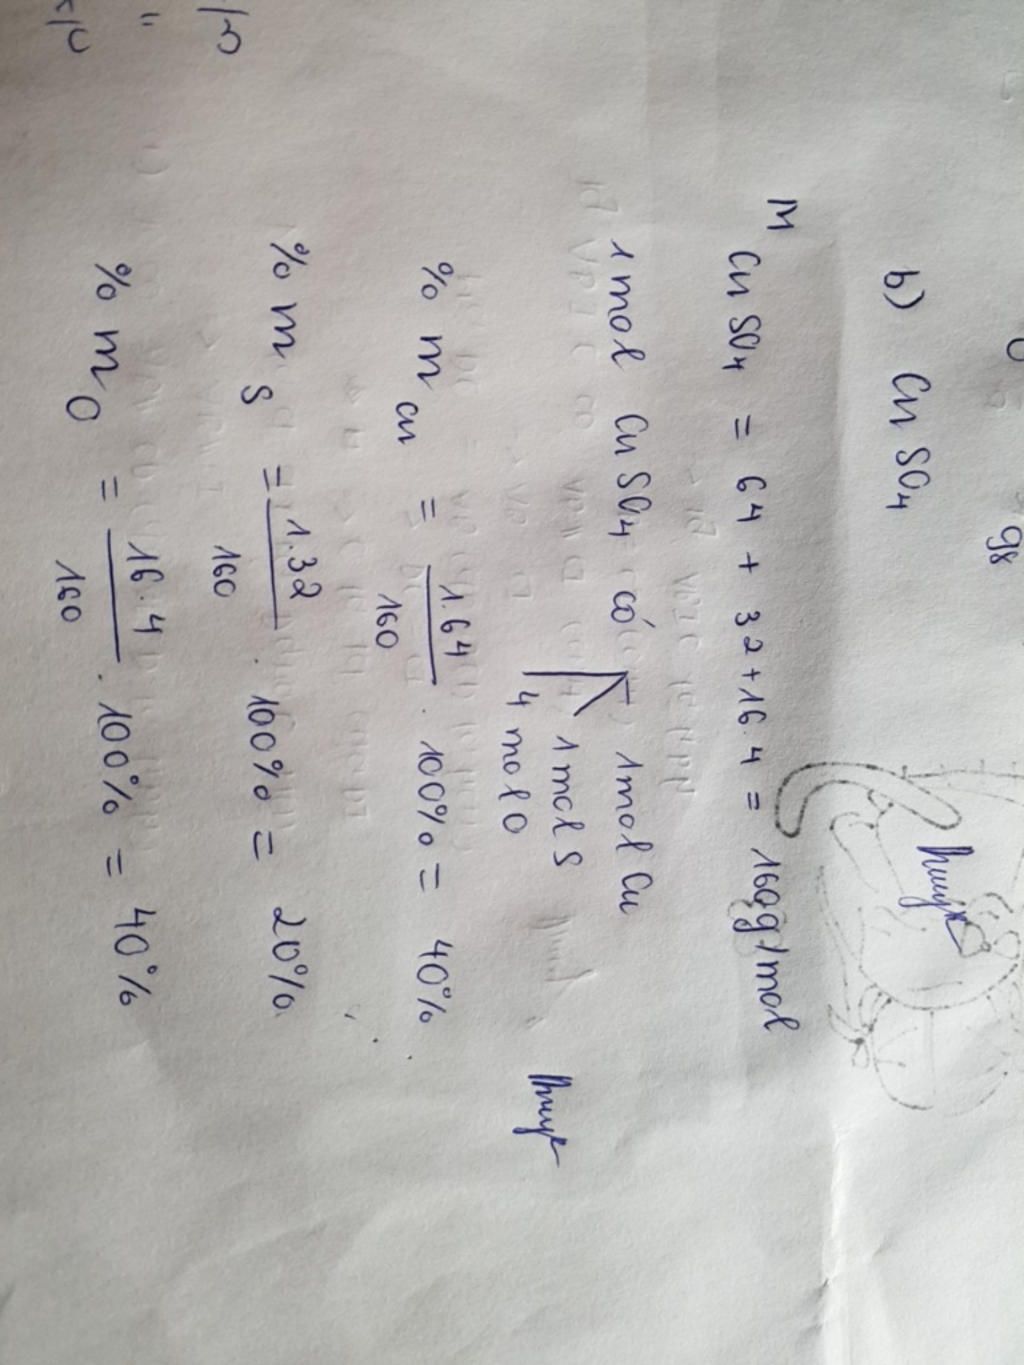 98
b) CuSO4
M CuSO4 = 64 + 32 + 16.4 = 160g/mol
1 mol CuSO4 có 1mol Cu
1 mol S
4 mol O
% m Cu = 1.64 / 160 . 100% = 40%
% m S = 1.32 / 160 . 100% = 20%
% m O = 16.4 / 160 . 100% = 40%